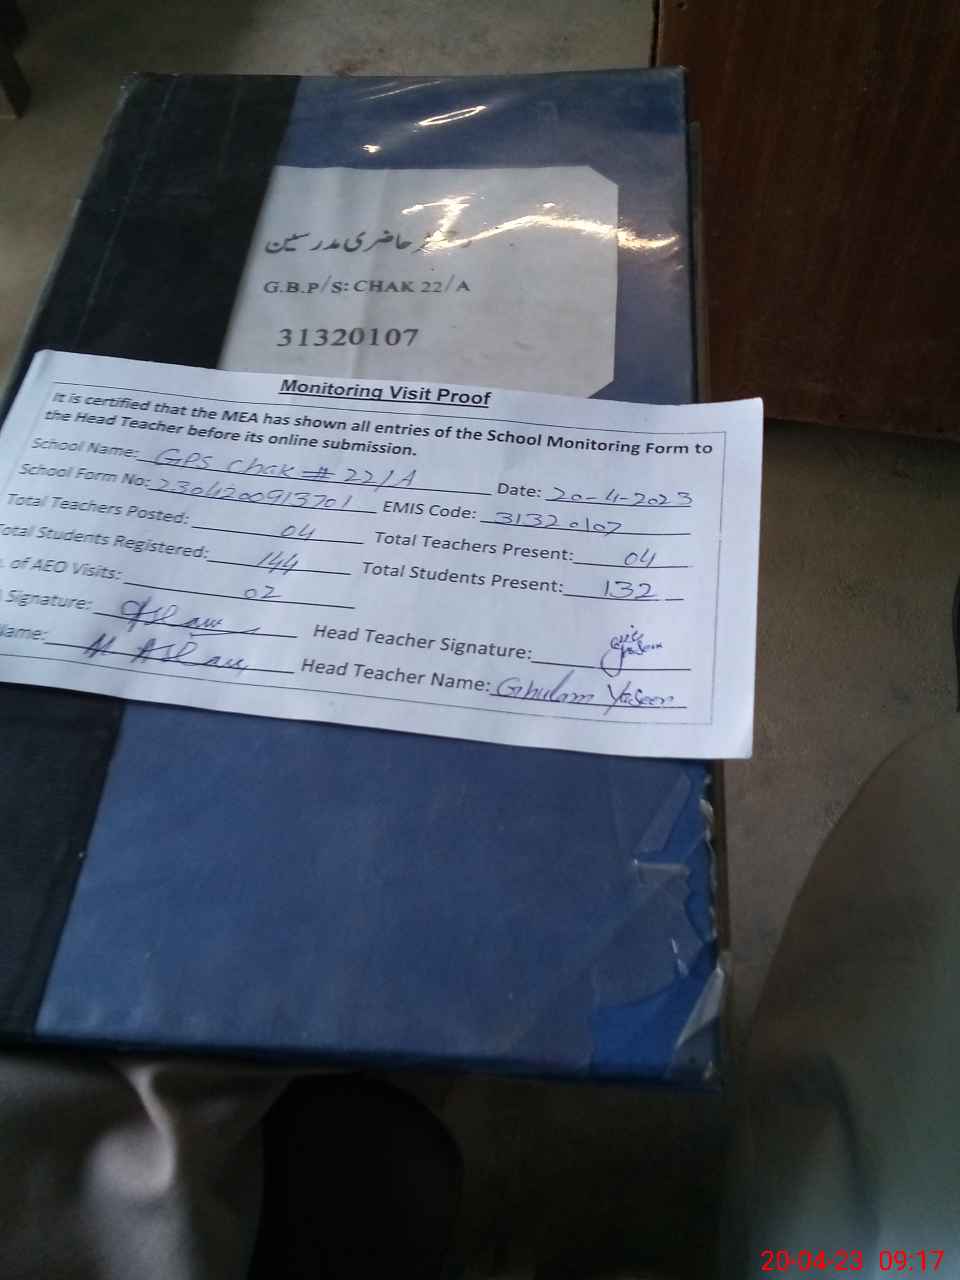 حاضری مدرسین
G.B.P/S: CHAK 22/A
31320107
Monitoring Visit Proof
It is certified that the MEA has shown all entries of the School Monitoring Form to
the Head Teacher before its online submission.
School Name: GPS Chak # 22/A Date: 20-4-2023
School Form No: 2304200913701 EMIS Code: 31320107
Total Teachers Posted: 04 Total Teachers Present: 04
Total Students Registered: 144 Total Students Present: 132
of AEO Visits: 02
Signature: Head Teacher Signature:
Name: Head Teacher Name: Ghulam Yaseen
20-04-23 09:17